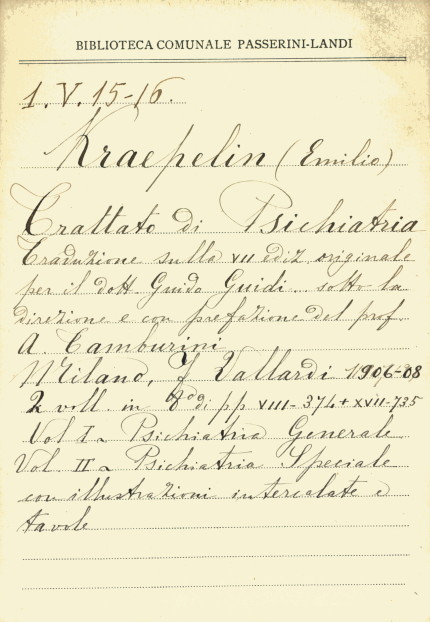 BIBLIOTECA COMUNALE PASSERINI-LANDI
1.V.15-16.
Kraepelin (Emilio)
Trattato di Psichiatria
Traduzione sulla VII ediz. originale
per il dott. Guido Guidi.. sotto la
direzione e con prefazione del prof.
A. Tamburini
Milano, F. Vallardi 1906-08
2 voll. in 8º di pp VIII-374+XVII-735
Vol I - Psichiatria Generale
Vol. II - Psichiatria Speciale
con illustrazioni intercalate e
tavole